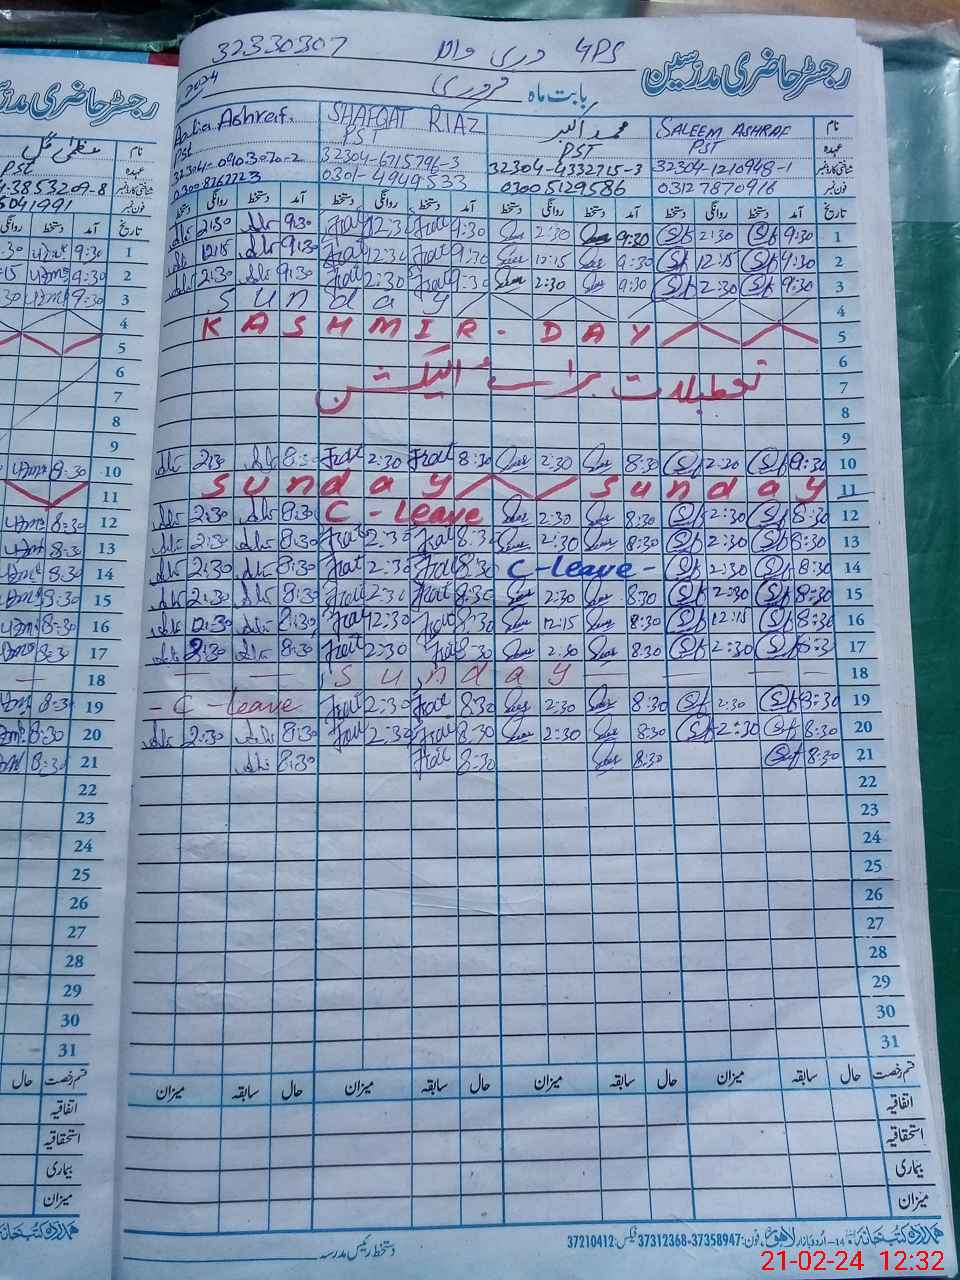 32330307 GPS
رجسٹر حاضری مدرسین
2024 فروری بابت ماہ
نام SALEEM ASHRAF محمد اکبر SHAFQAT RIAZ Ashraf.
عہدہ PST PST PST PST
شناختی کارڈ نمبر 32304-1210948-1 32304-4332715-3 32304-6715796-3 32304-0903070-2
فون نمبر 03127870916 03005129586 0301-4949533 03008767723
تاریخ آمد دستخط روانگی دستخط آمد دستخط روانگی دستخط آمد دستخط روانگی دستخط آمد دستخط روانگی دستخط
1 9:30 2:30 9:30 2:30 9:30 12:30 9:30 2:30
2 9:30 12:15 9:30 12:15 9:30 12:30 9:30 12:15
3 9:30 2:30 9:30 2:30 9:30 2:30 9:30 2:30
4 Sunday
5 KASHMIR - DAY
6
7 تعطیلات برائے الیکشن
8
9
10 9:30 2:30 8:30 2:30 8:30 2:30 8:30 2:30
11 Sunday Sunday
12 8:30 2:30 8:30 2:30 C - Leave 8:30 2:30
13 8:30 2:30 8:30 2:30 8:30 2:30 8:30 2:30
14 8:30 2:30 C-leave- 8:30 2:30 8:30 2:30
15 8:30 2:30 8:30 2:30 8:30 2:30 8:30 2:30
16 8:30 12:15 8:30 12:15 8:30 12:30 8:30 12:30
17 8:30 2:30 8:30 2:30 8:30 2:30 8:30 2:30
18 Sunday
19 8:30 2:30 8:30 2:30 8:30 2:30 - C - leave
20 8:30 2:30 8:30 2:30 8:30 2:30 8:30 2:30
21 8:30 8:30 8:30 8:30
22
23
24
25
26
27
28
29
30
31
قسم رخصت حال سابقہ میزان حال سابقہ میزان حال سابقہ میزان حال سابقہ میزان
اتفاقیہ
استحقاقیہ
بیماری
میزان
دستخط رئیس مدرسہ
ہمدرد کتب خانہ اردو بازار لاہور، فون: 37358947-37312368 فیکس: 37210412
21-02-24 12:32
نام
عہدہ PST
شناختی کارڈ نمبر 3853209-8
فون نمبر 5041991
تاریخ آمد دستخط روانگی
1 9:30
2 9:30
3 9:30
4
5
6
7
8
9
10 8:30
11
12 8:30
13 8:30
14 8:30
15 8:30
16 8:30
17 8:30
18
19 8:30
20 8:30
21 8:30
22
23
24
25
26
27
28
29
30
31
قسم رخصت حال
اتفاقیہ
استحقاقیہ
بیماری
میزان